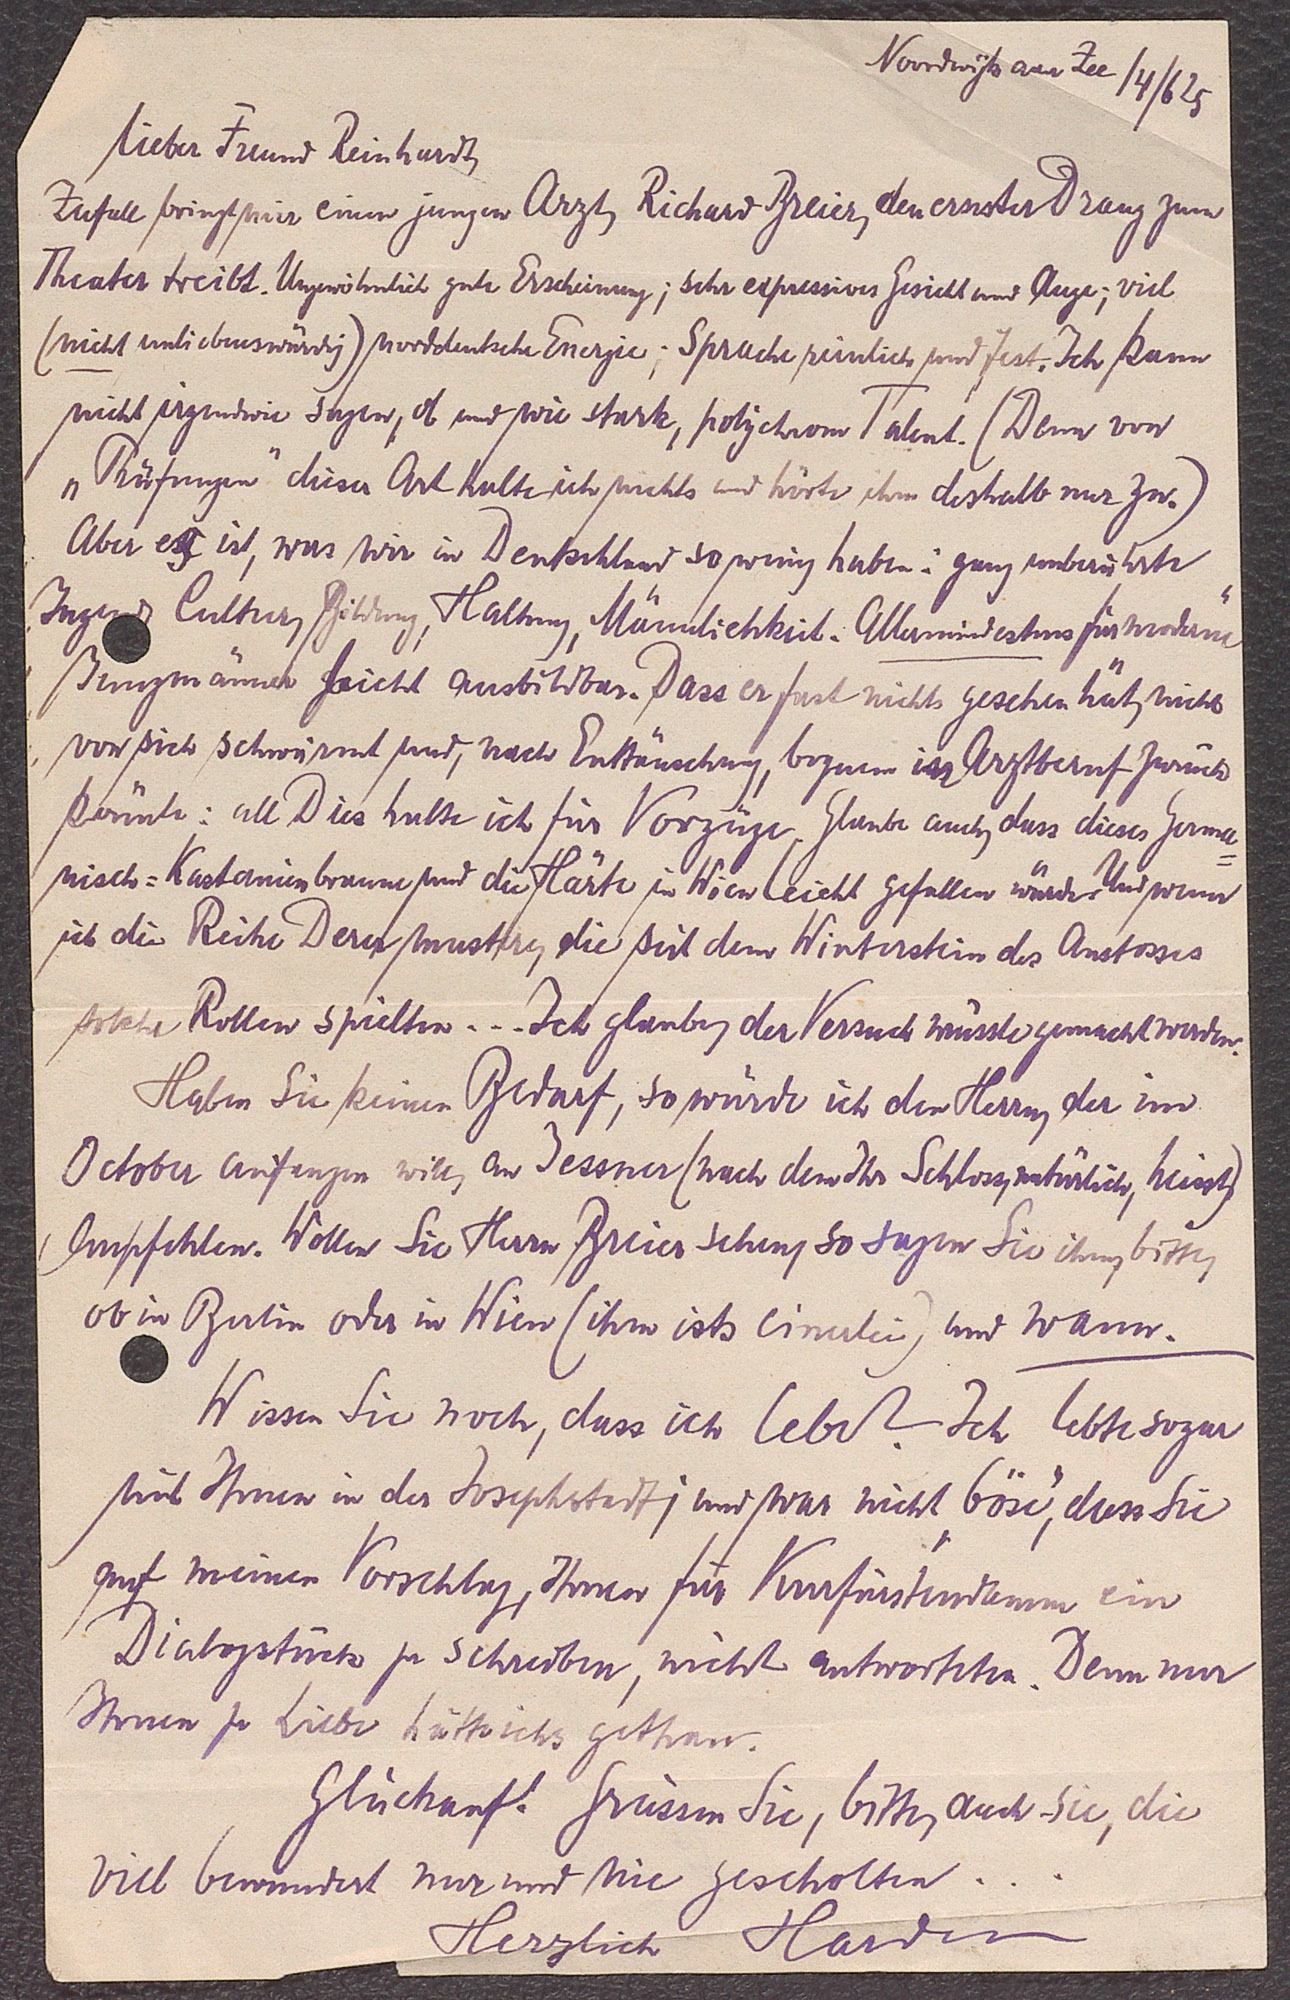 Noordwijk aan Zee /4/6 25
Lieber Freund Reinhardt,
Zufall bringt mir einen jungen Arzt, Richard Breier, den ernster Drang zum
Theater treibt. Ungewöhnlich gute Erscheinung; sehr expressives Gesicht und Auge; viel
(nicht unliebenswürdig) norddeutsche Energie; Sprache reinlich und fest. Ich kann
nicht irgendwie sagen, ob und wie stark, polychrom Talent. (Denn von
„Prüfungen" dieser Art halte ich nichts und hörte ihm deshalb nur zu.)
Aber es ist, was wir in Deutschland so wenig haben: ganz unberührte
Jugend, Cultur, Bildung, Haltung, Männlichkeit. Allermindestens für „moderne"
Jungmänner leicht ausbildbar. Dass er fast nichts gesehen hat, nicht
von sich schwärmt und, nach Enttäuschung, bequem in Arztberuf zurück
könnte: all Dies halte ich für Vorzüge. Glaube auch, dass dieses Germa=
nisch=Kastanienbraune und die Härte in Wien leicht gefallen würde. Und wenn
ich die Reihe Derer mustere, die seit dem Winterstein des Anstosses
solche Rollen spielten ... Ich glaube, der Versuch müsste gemacht werden.
Haben Sie keinen Bedarf, so würde ich den Herrn, der im
October anfangen will, an Jessner (nach dem Ihr Schloss, natürlich, heisst)
empfehlen. Wollen Sie Herrn Breier sehen, so sagen Sie ihm, bitte,
ob in Berlin oder in Wien (ihm ists einerlei) und wann.
Wissen Sie noch, dass ich lebe? Ich lebte sogar
mit Ihnen in der Josephstadt; und war nicht „böse", dass Sie
auf meinen Vorschlag, Ihnen für Kurfürstendamm ein
Dialogstück zu schreiben, nicht antworteten. Denn nur
Ihnen zu Liebe hätte ichs gethan.
Glückauf! Grüssen Sie, bitte, auch sie, die
viel bewundert nur und nie gescholten ...
Herzlich Harden